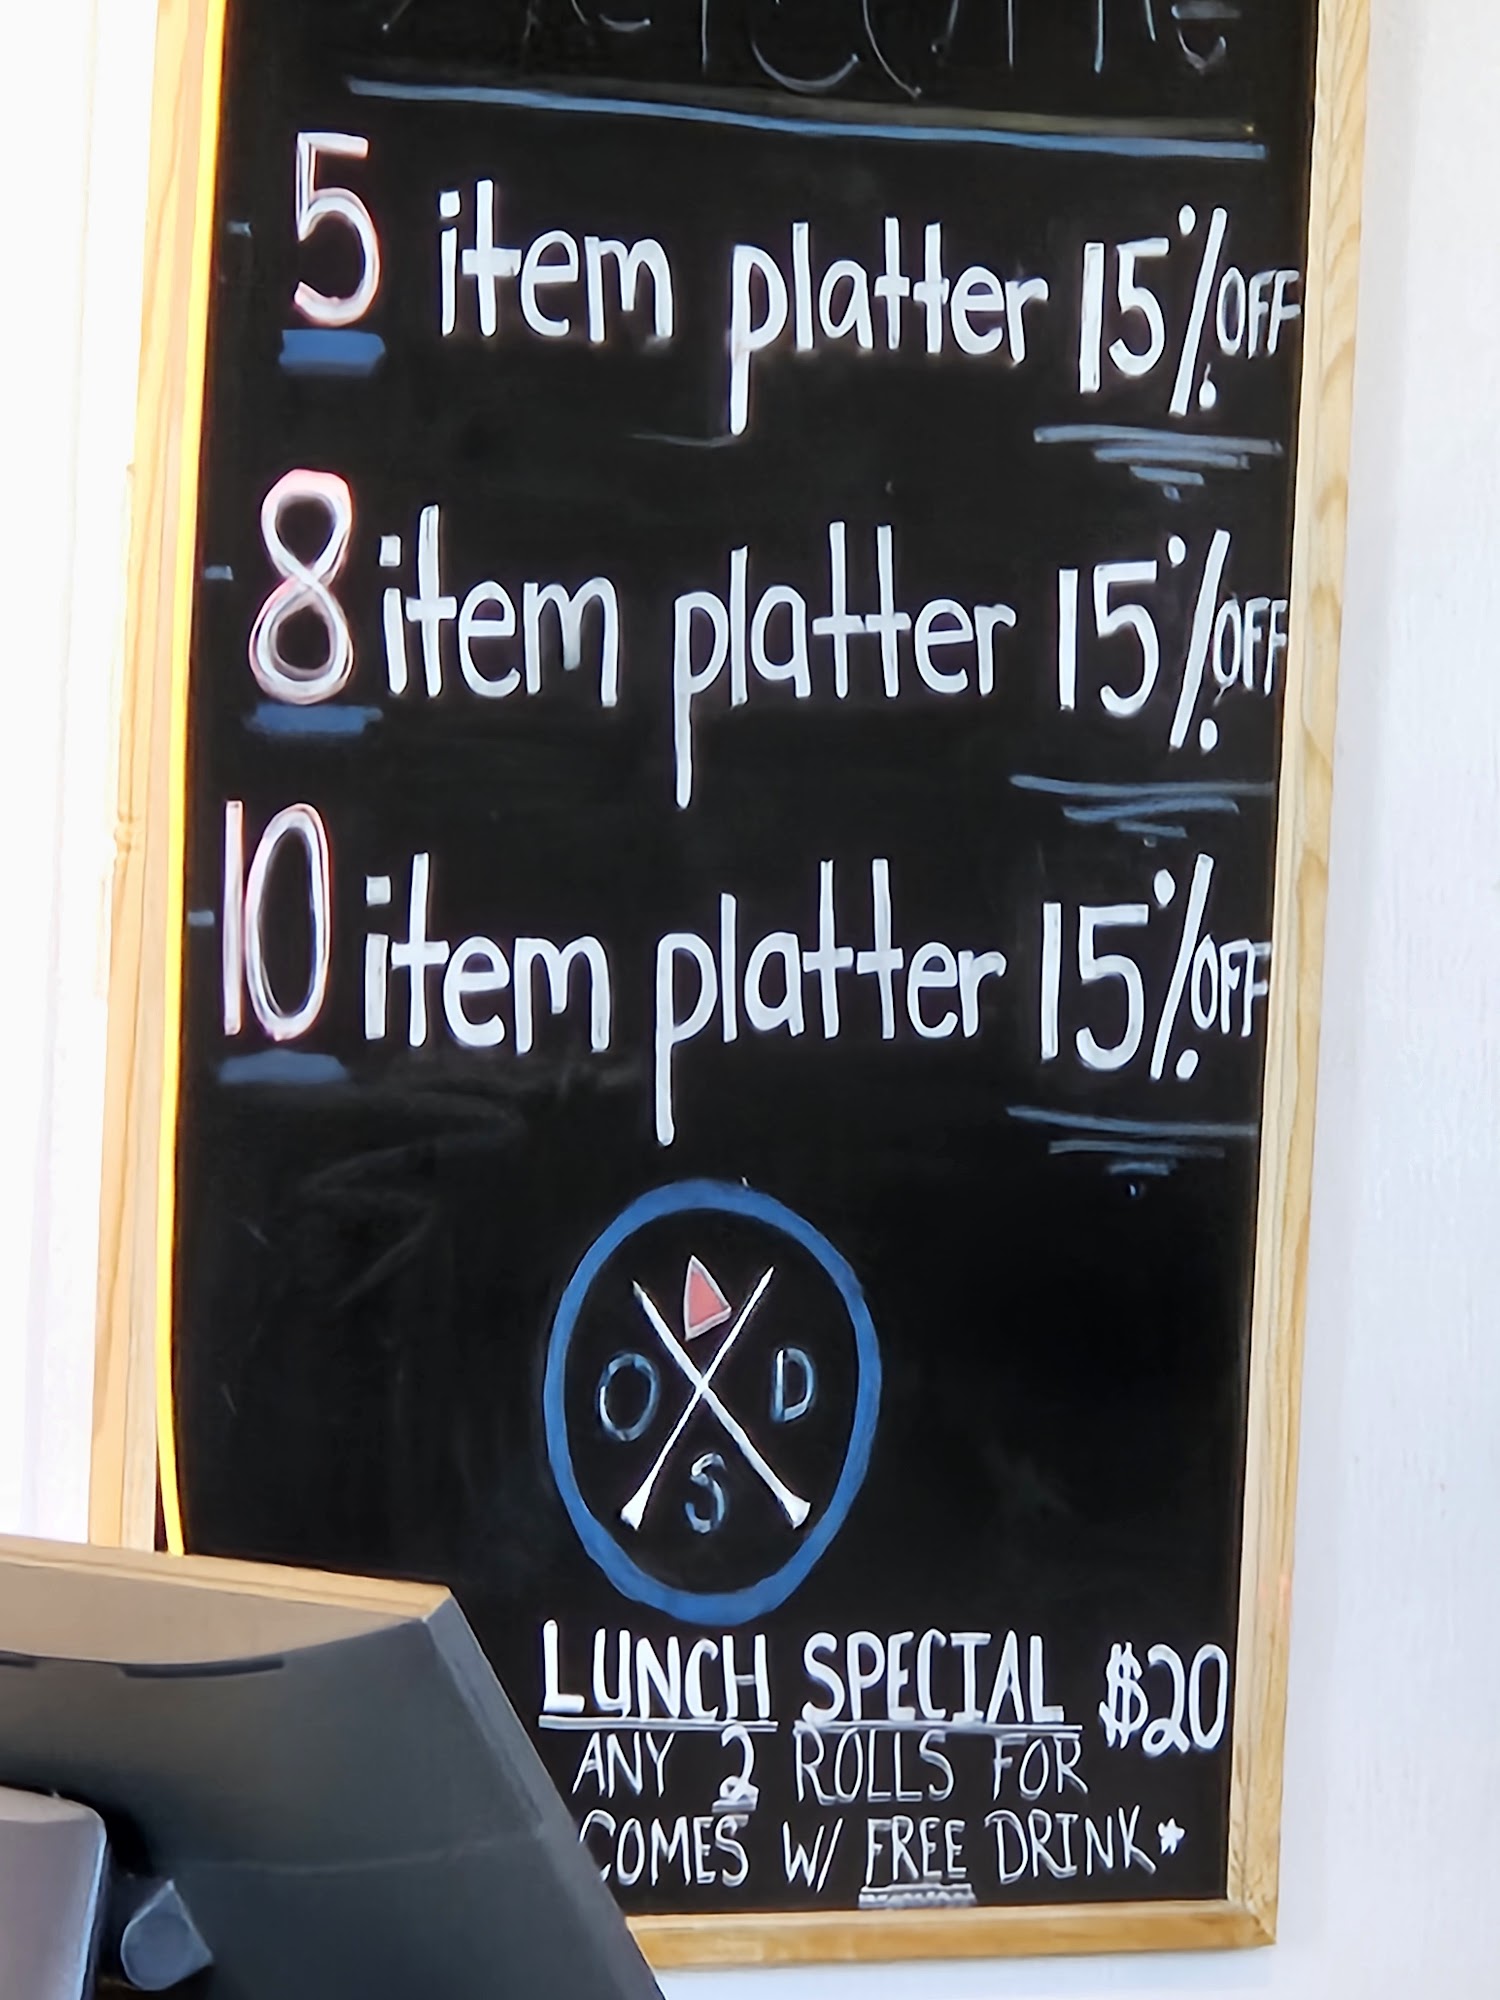 5 item platter 15% OFF
8 item platter 15% OFF
10 item platter 15% OFF
O D
S
LUNCH SPECIAL $20
ANY 2 ROLLS FOR
COMES W/ FREE DRINK*